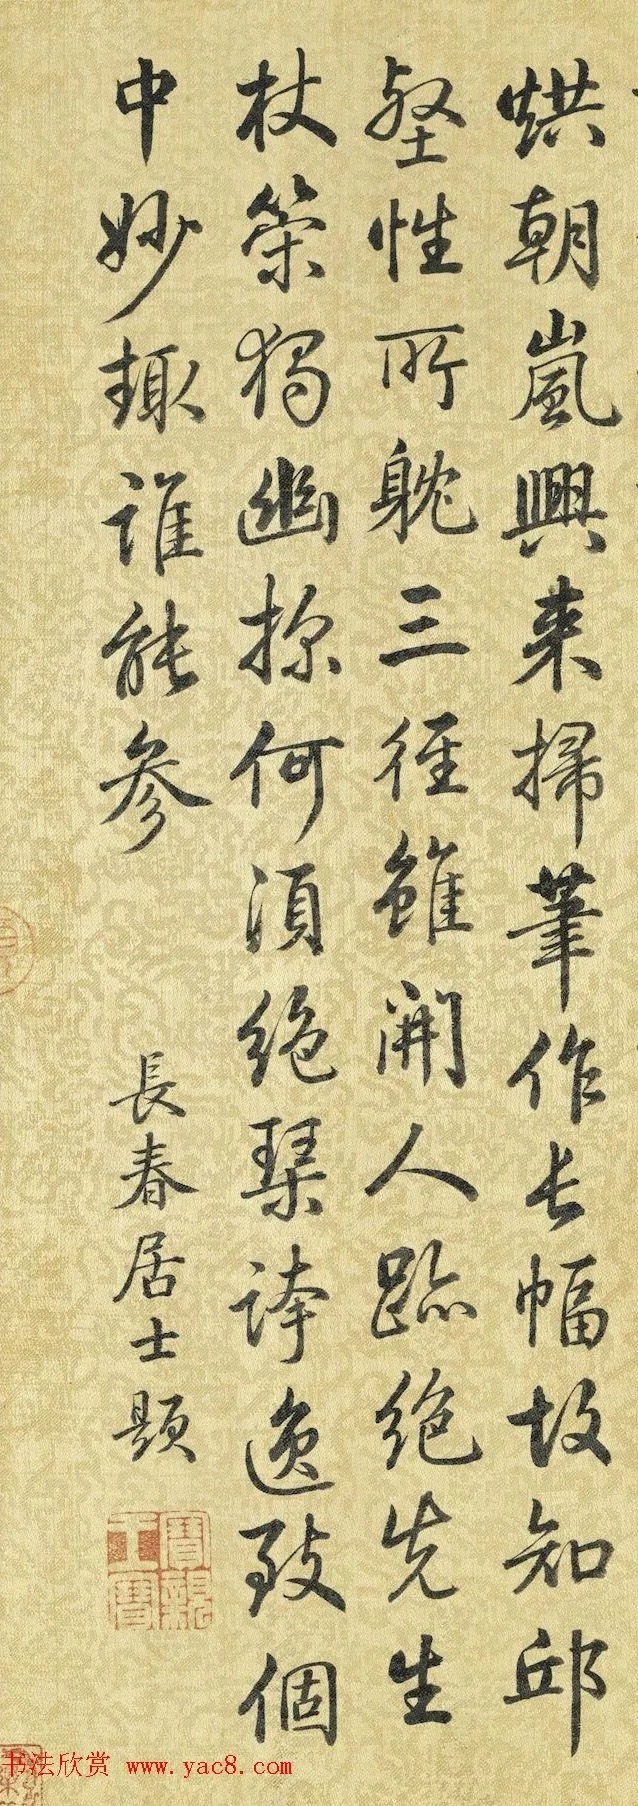 烘朝嵐興来掃筆作長幅故知邱
壑性所躭三徑雖開人跡絶先生
杖策獨幽探何須絶琹誇逸致個
中妙趣誰能參
長春居士題
寶親王寶
书法欣赏 www.yac8.com